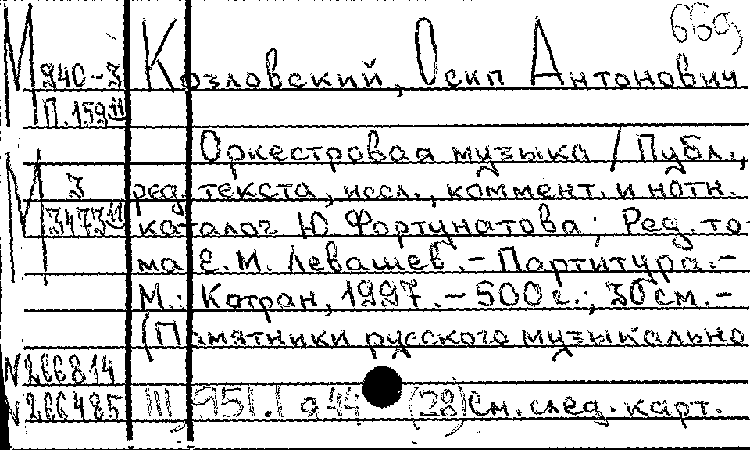 669
М 940-3 Козловский, Осип Антонович
П.159 II
Оркестровая музыка / Публ.,
М 3 ред. текста, иссл., коммент. и нотн.
3473 II каталог Ю Фортунатова; Ред. то-
ма Е.М. Левашев. - Партитура. -
М.: Катран, 1997. - 500 с.; 30 см. -
(Памятники русского музыкально
N266814
N266485 III, 951.1 д 44 (28) См. след. карт.